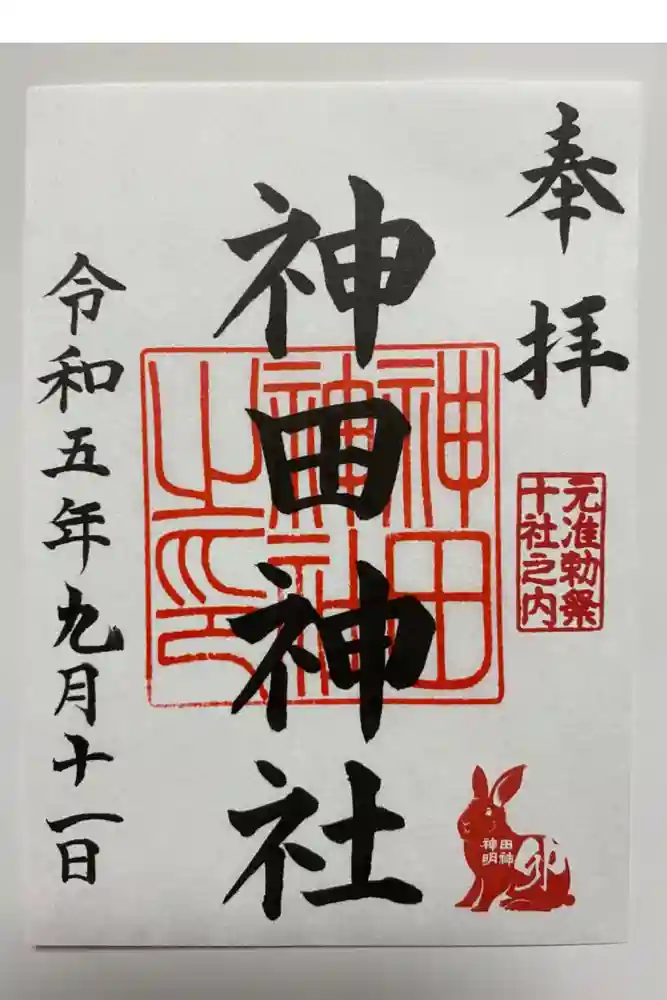 奉拝
元准勅祭
十社之内
神田
明神
卯
神田神社
神田
神社
之印
令和五年九月十一日